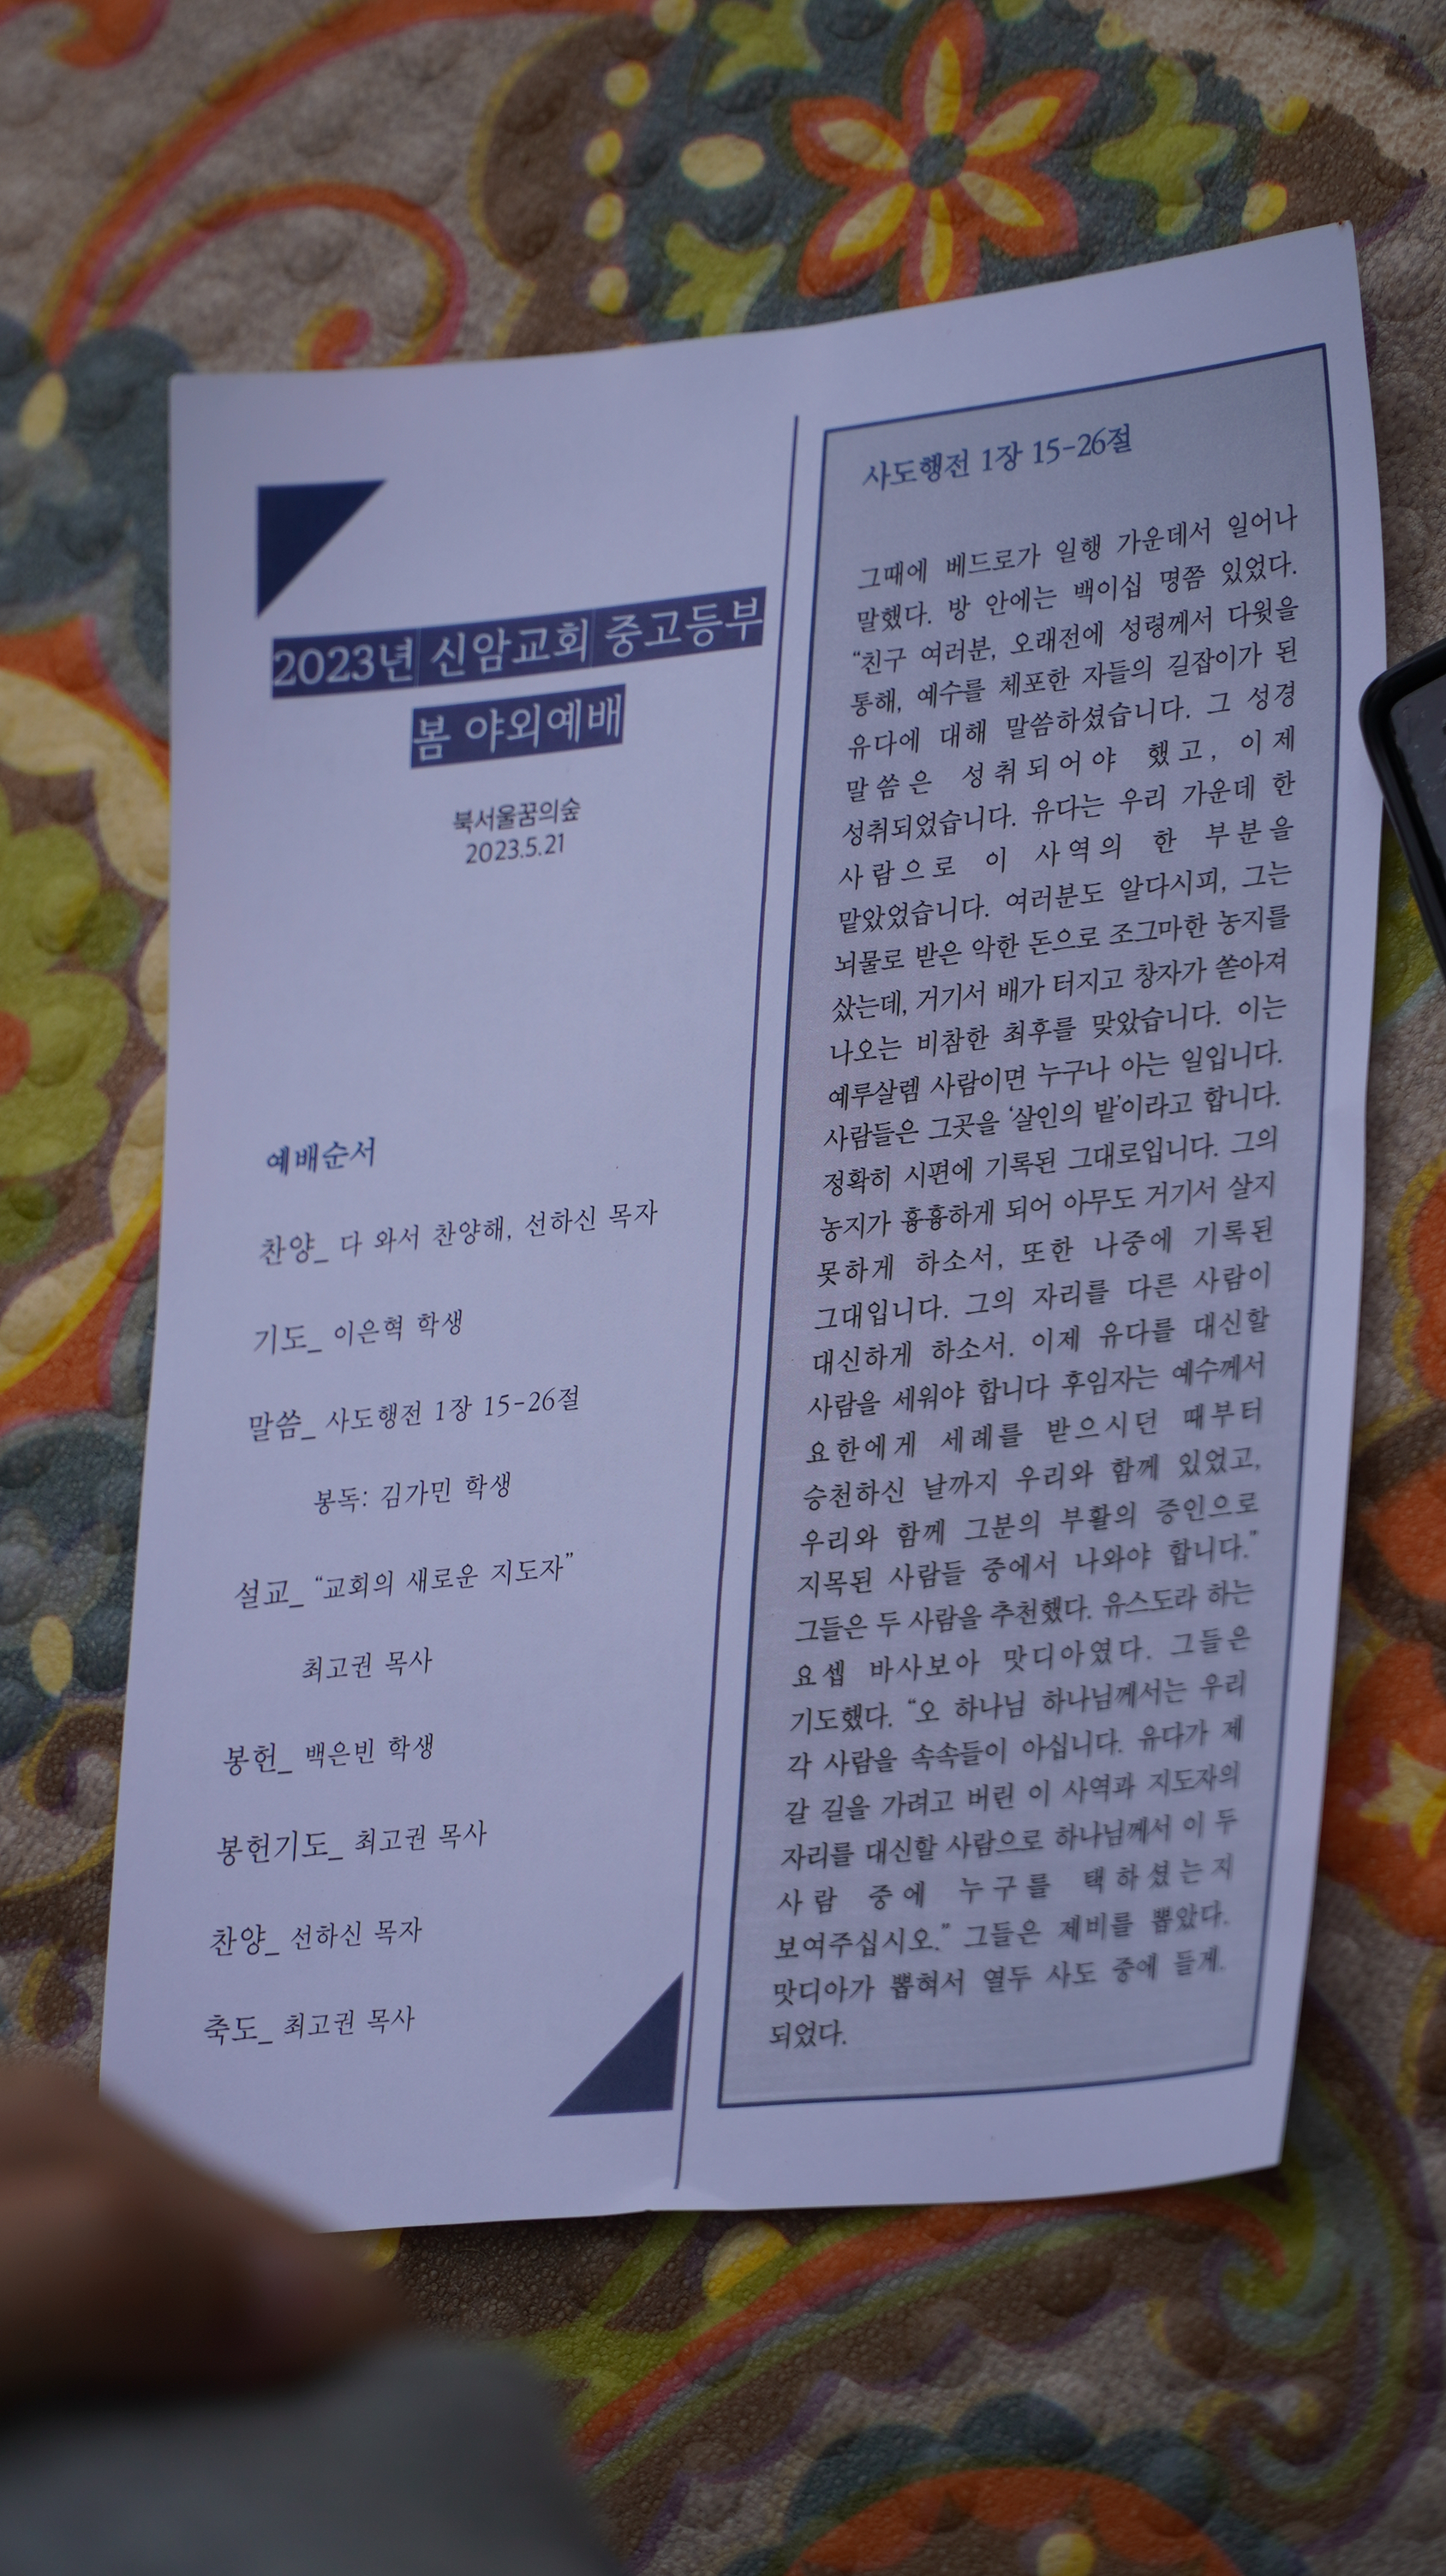 2023년 신암교회 중고등부
봄 야외예배
북서울꿈의숲
2023.5.21
예배순서
찬양_ 다 와서 찬양해, 선하신 목자
기도_ 이은혁 학생
말씀_ 사도행전 1장 15-26절
봉독: 김가민 학생
설교_ “교회의 새로운 지도자”
최고권 목사
봉헌_ 백은빈 학생
봉헌기도_ 최고권 목사
찬양_ 선하신 목자
축도_ 최고권 목사
사도행전 1장 15-26절
그때에 베드로가 일행 가운데서 일어나
말했다. 방 안에는 백이십 명쯤 있었다.
“친구 여러분, 오래전에 성령께서 다윗을
통해, 예수를 체포한 자들의 길잡이가 된
유다에 대해 말씀하셨습니다. 그 성경
말씀은 성취되어야 했고, 이제
성취되었습니다. 유다는 우리 가운데 한
사람으로 이 사역의 한 부분을
맡았었습니다. 여러분도 알다시피, 그는
뇌물로 받은 악한 돈으로 조그마한 농지를
샀는데, 거기서 배가 터지고 창자가 쏟아져
나오는 비참한 최후를 맞았습니다. 이는
예루살렘 사람이면 누구나 아는 일입니다.
사람들은 그곳을 ‘살인의 밭’이라고 합니다.
정확히 시편에 기록된 그대로입니다. 그의
농지가 흉흉하게 되어 아무도 거기서 살지
못하게 하소서, 또한 나중에 기록된
그대입니다. 그의 자리를 다른 사람이
대신하게 하소서. 이제 유다를 대신할
사람을 세워야 합니다 후임자는 예수께서
요한에게 세례를 받으시던 때부터
승천하신 날까지 우리와 함께 있었고,
우리와 함께 그분의 부활의 증인으로
지목된 사람들 중에서 나와야 합니다.”
그들은 두 사람을 추천했다. 유스도라 하는
요셉 바사보아 맛디아였다. 그들은
기도했다. “오 하나님 하나님께서는 우리
각 사람을 속속들이 아십니다. 유다가 제
갈 길을 가려고 버린 이 사역과 지도자의
자리를 대신할 사람으로 하나님께서 이 두
사람 중에 누구를 택하셨는지
보여주십시오.” 그들은 제비를 뽑았다.
맛디아가 뽑혀서 열두 사도 중에 들게.
되었다.